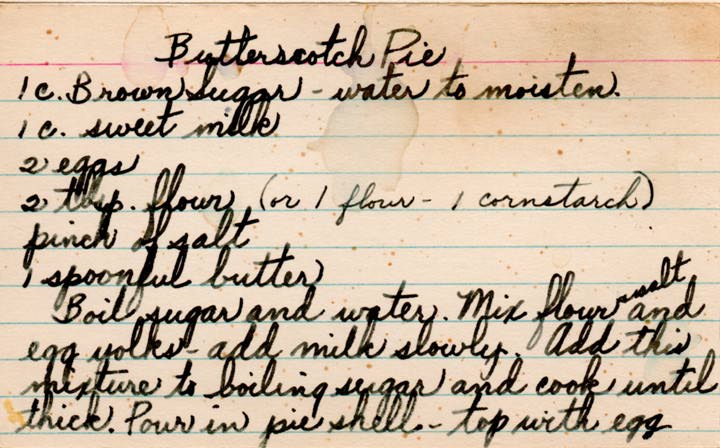 Butterscotch Pie
1 c. Brown Sugar - water to moisten.
1 c. sweet milk
2 eggs
2 tbsp. flour (or 1 flour - 1 cornstarch)
pinch of salt
1 spoonful butter
Boil sugar and water. Mix flour salt and
egg yolks - add milk slowly. Add this
mixture to boiling sugar and cook until
thick. Pour in pie shell - top with egg